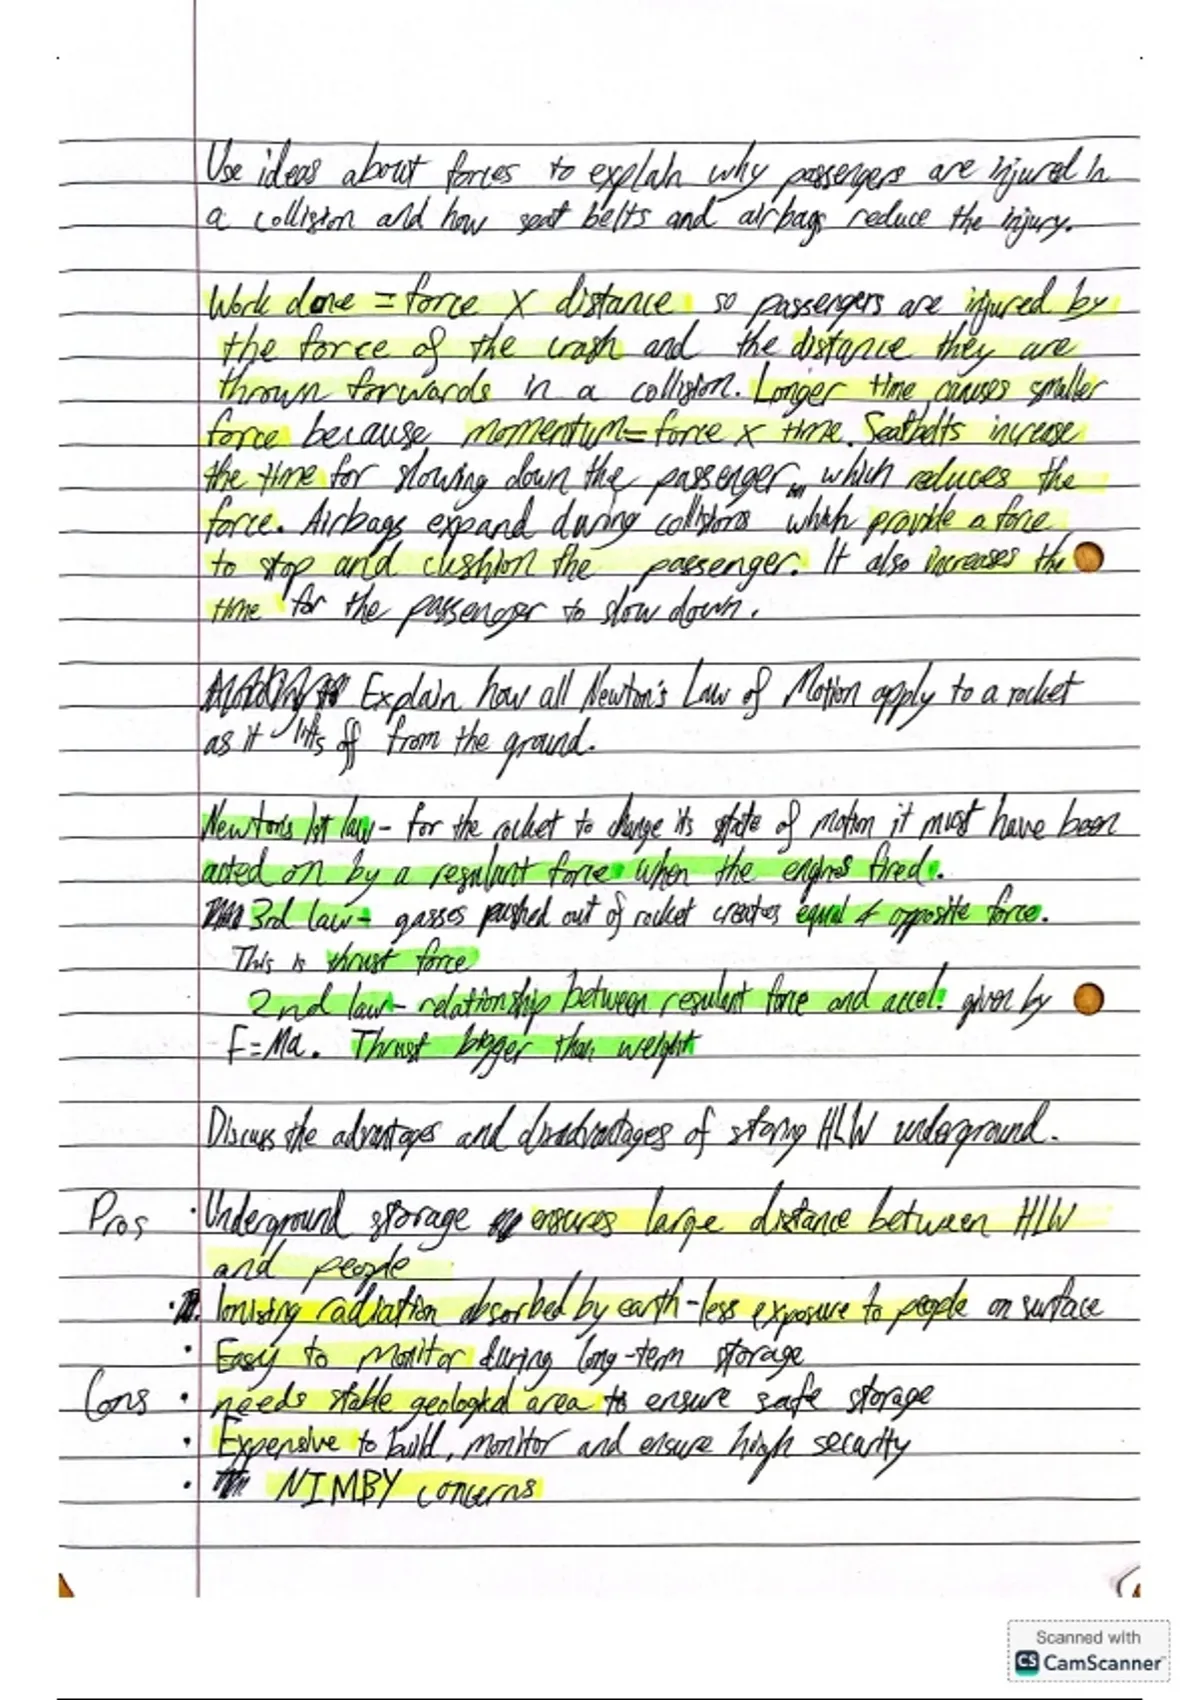 Use ideas about forces to explain why passengers are injured in
a collision and how seat belts and airbags reduce the injury.
Work done = force x distance so passengers are injured by
the force of the crash and the distance they are
thrown forwards in a collision. Longer time causes smaller
force because momentum = force x time. Seatbelts increase
the time for slowing down the passenger which reduces the
force. Airbags expand during collisions which provide a force
to stop and cushion the passenger. It also increases the
time for the passenger to slow down.
Explain how all Newton's Law of Motion apply to a rocket
as it lifts off from the ground.
Newtons 1st law - for the rocket to change its state of motion it must have been
acted on by a resultant force when the engines fired.
3rd law - gasses pushed out of rocket creates equal & opposite force.
This is thrust force
2nd law - relationship between resultant force and accel. given by
F=Ma. Thrust bigger than weight
Discuss the advantages and disadvantages of storing HLW underground.
Pros · Underground storage ensures large distance between HLW
and people
· Ionising radiation absorbed by earth - less exposure to people on surface
· Easy to monitor during long-term storage
Cons · needs stable geological area to ensure safe storage
· Expensive to build, monitor and ensure high security
· NIMBY concerns
Scanned with
CS CamScanner